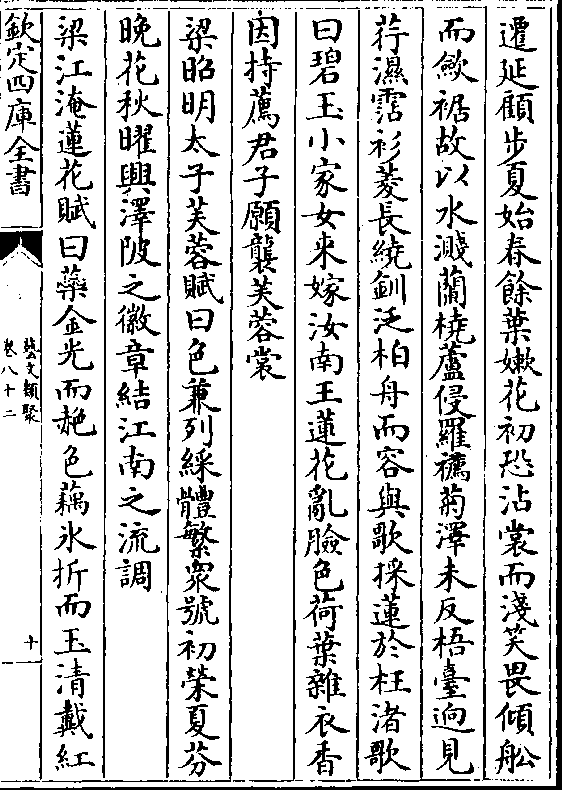 遷延顧步夏始春餘葉嫩花初恐沾裳而淺笑畏傾舩
而歛裾故以水濺蘭橈蘆侵羅䙅菊澤未反梧臺逈見
荇濕霑衫菱長繞釧泛柏舟而容與歌採蓮於枉渚歌
曰碧玉小家女來嫁汝南王蓮花亂臉色荷葉雜衣香
因持薦君子願襲芙蓉裳
梁昭明太子芙蓉賦曰色兼列綵體繁衆號初榮夏芬
晚花秋曜興澤陂之徽章結江南之流調
梁江淹蓮花賦曰蘂金光而絶色藕氷折而玉清戴紅
欽定四庫全書
藝文類聚
卷八十二
十